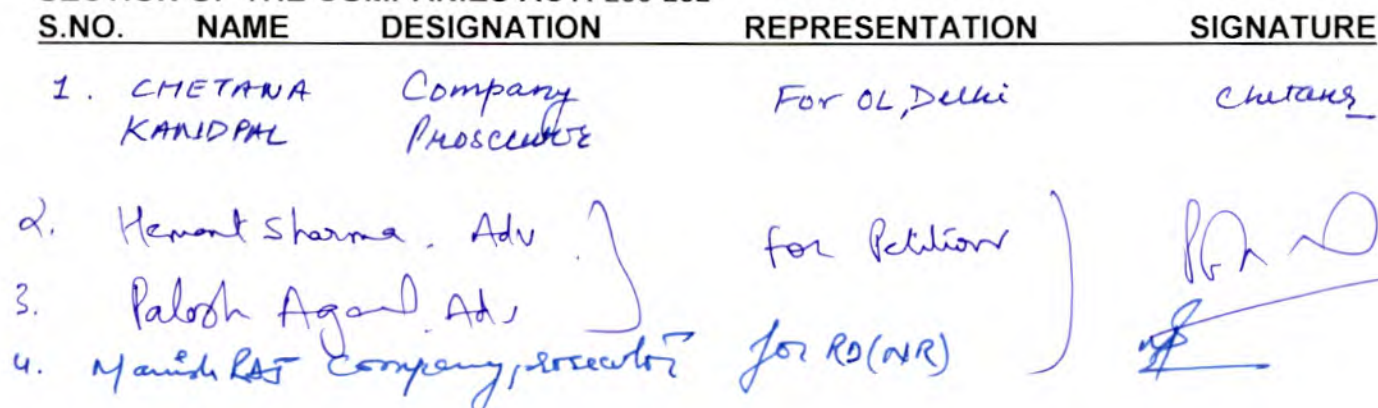 S.NO. NAME DESIGNATION REPRESENTATION SIGNATURE
1. CHETANA Company For OL, Delhi Chetana
KANDPAL Prosecutor
2. Hemant Sharma. Adv. for Petitioner
3. Palash Agarwal. Adv
4. Manish RAJ Company prosecutor for RD(NR)